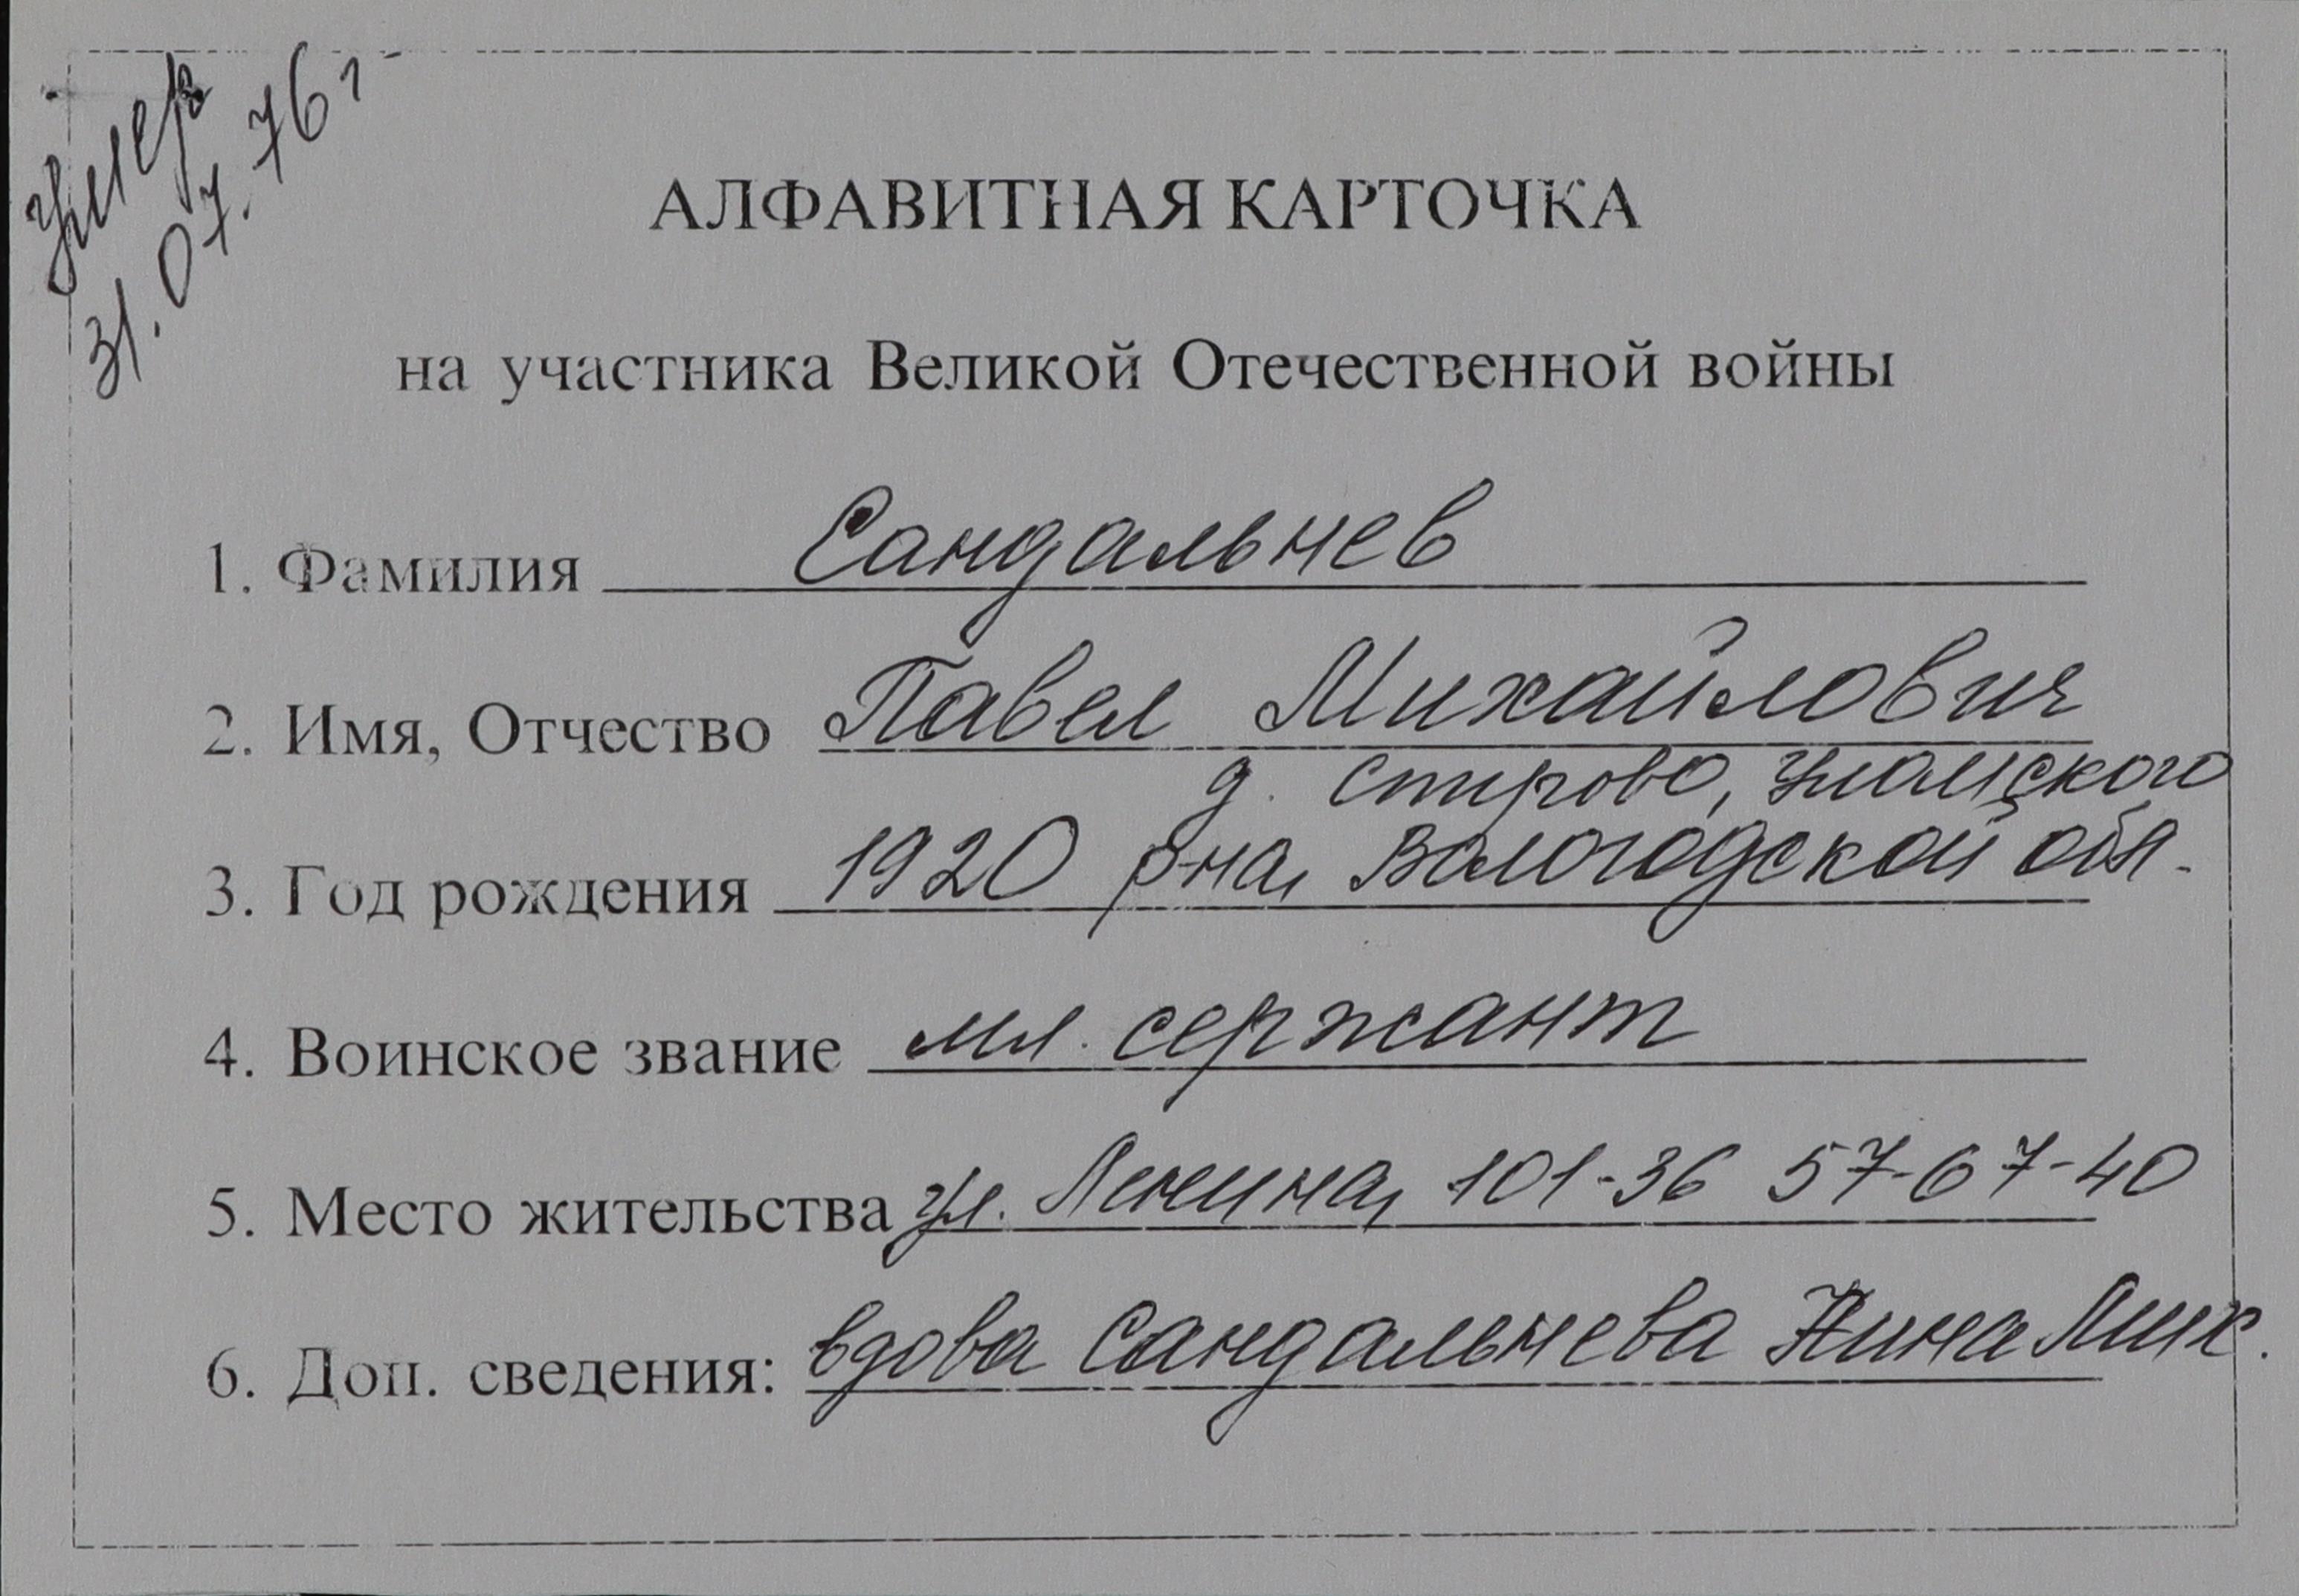 умер
31.07.76 г.
АЛФАВИТНАЯ КАРТОЧКА
на участника Великой Отечественной войны
1. Фамилия Сандальнев
2. Имя, Отчество Павел Михайлович
д. Спирово,
3. Год рождения 1920 р-на, Вологодской обл.
4. Воинское звание мл. сержант
5. Место жительства ул. Ленина, 101-36 57-67-40
6. Доп. сведения: вдова Сандальнева Нина Мих.